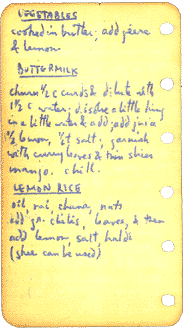 VEGETABLES
cooked in butter; add jeera
& lemon
BUTTERMILK
churn ½ c curds & dilute with
1½ c water; dissolve a little hing
in a little water & add; add jeera
½ lemon, ½t salt; garnish
with curry leaves & thin slices
mango. chill.
LEMON RICE
oil, rai, chana, nuts
add gr. chilis, leaves, & then
add lemon, salt, haldi
(rice can be used)